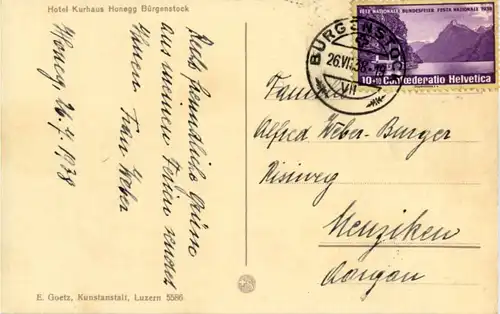 Hotel Kurhaus Honegg Bürgenstock
Honeg, 26.7.1938
Recht freundliche Grüsse
aus meinen Ferien sendet
Ihnen Frau Weber
E. Goetz, Kunstanstalt, Luzern 5586
FETE NATIONALE BUNDESFEIER FESTA NAZIONALE 1938
10+10 Confœderatio Helvetica
BÜRGENSTOCK
26.VII.38
VII
Familie
Alfred Weber-Burger
Menziken
Aargau